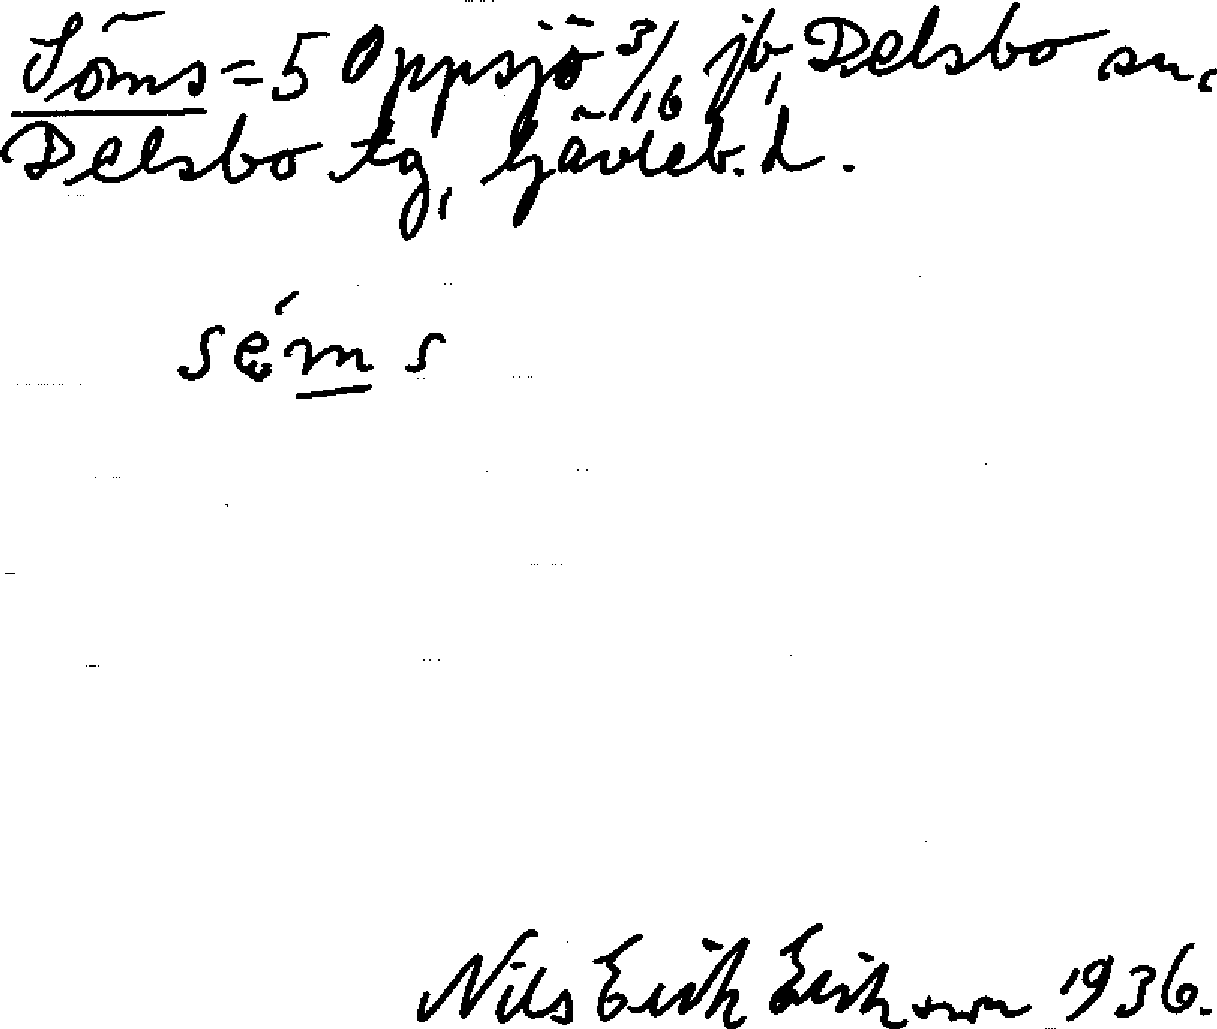 Söms = 5 Oppsjö 3/16 jb, Delsbo sn,
Delsbo tg, Gävleb. l.
sé̤m s
Nils Erik Eriksson 1936.